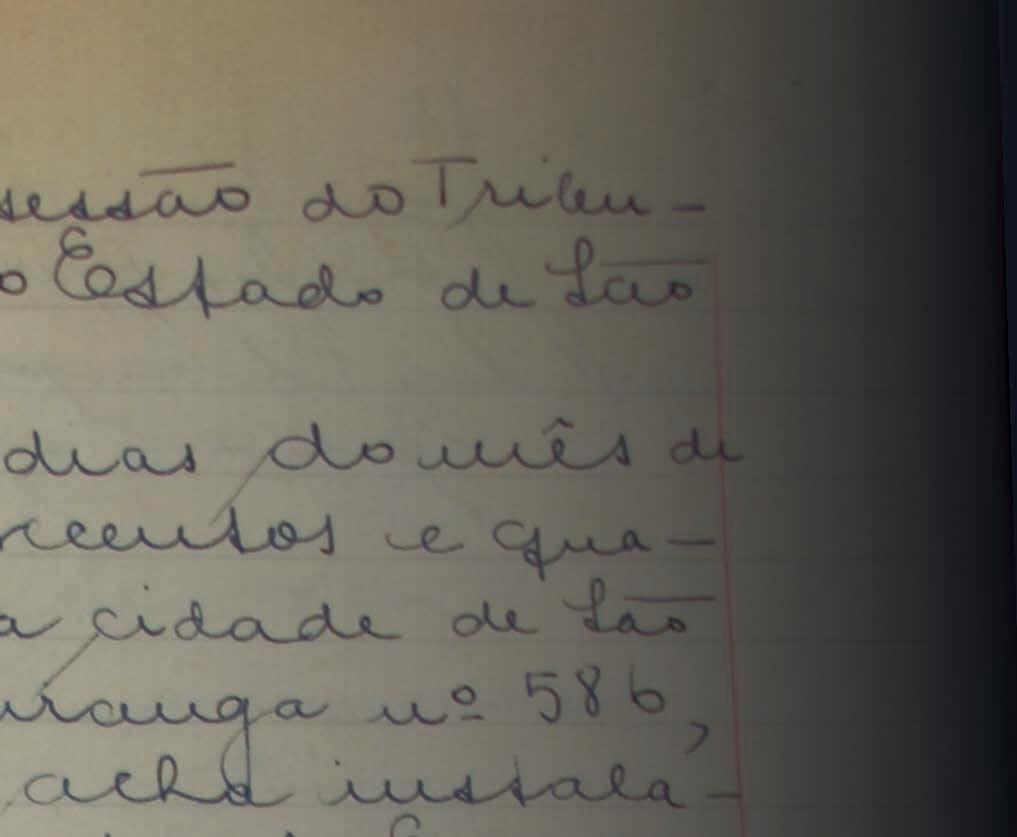 sessão do Tribu-
o Estado de São
dias do mês de
centos e qua-
a cidade de São
iranga nº 586,
acha instala-